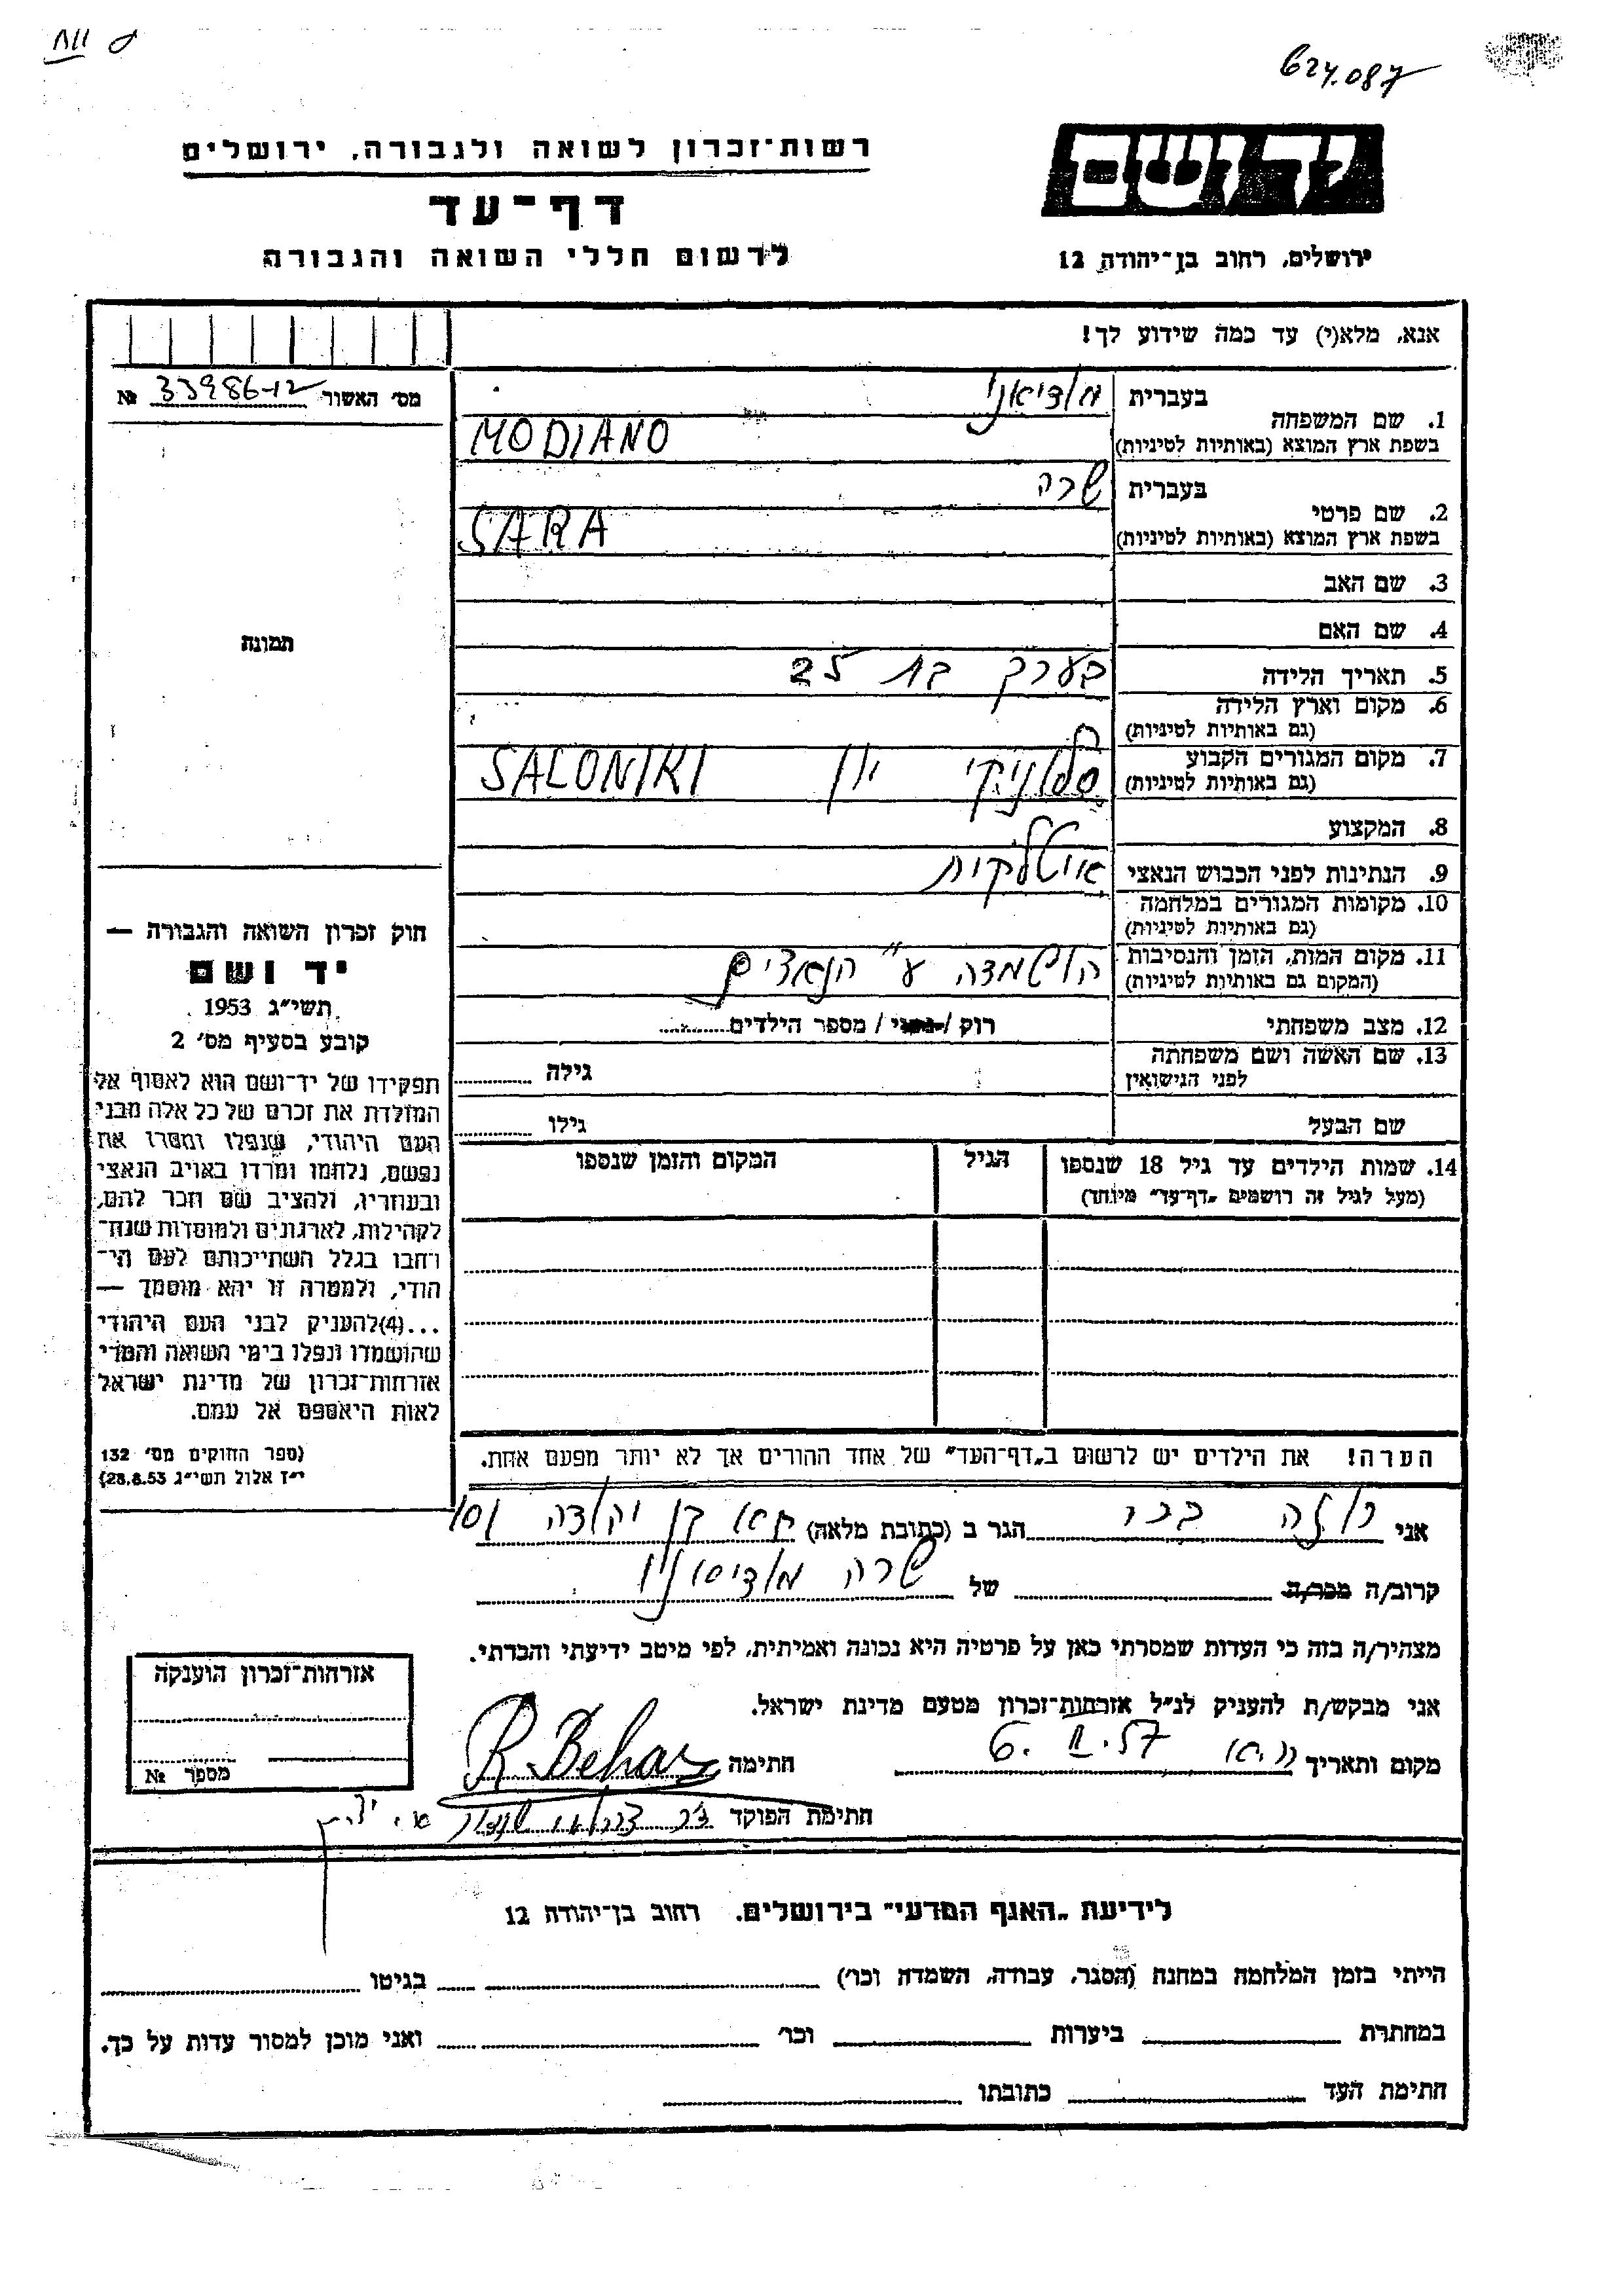 624.087
רשות־זכרון לשואה ולגבורה, ירושלים
דף־עד
לרשום חללי השואה והגבורה
ידושם
ירושלים, רחוב בן־יהודה 12
אנא, מלא(י) עד כמה שידוע לך!
מס' האשור 33986-12 №
תמונה
חוק זכרון השואה והגבורה —
יד ושם
תשי״ג 1953
קובע בסעיף מס' 2
תפקידו של יד־ושם הוא לאסוף אל
המולדת את זכרם של כל אלה מבני
העם היהודי, שנפלו ומסרו את
נפשם, נלחמו ומרדו באויב הנאצי
ובעוזריו, ולהציב שם וזכר להם,
לקהילות, לארגונים ולמוסדות שנח־
רבו בגלל השתייכותם לעם הי־
הודי, ולמטרה זו יהא מוסמך —
...(4)להעניק לבני העם היהודי
שהושמדו ונפלו בימי השואה והמרי
אזרחות־זכרון של מדינת ישראל
לאות היאספם אל עמם.
(ספר החוקים מס' 132
י״ז אלול תשי״ג 28.8.53)
1. שם המשפחה
בעברית מודיאנו
בשפת ארץ המוצא (באותיות לטיניות) MODIANO
2. שם פרטי
בעברית שרה
בשפת ארץ המוצא (באותיות לטיניות) SARA
3. שם האב
4. שם האם
5. תאריך הלידה בערך בת 25
6. מקום וארץ הלידה
(גם באותיות לטיניות)
7. מקום המגורים הקבוע סלוניקי יון SALONIKI
(גם באותיות לטיניות)
8. המקצוע
9. הנתינות לפני הכבוש הנאצי איטלקית
10. מקומות המגורים במלחמה
(גם באותיות לטיניות)
11. מקום המות, הזמן והנסיבות הושמדה ע״ הנאצים
(המקום גם באותיות לטיניות)
12. מצב משפחתי רוק / נשוי / מספר הילדים
13. שם האשה ושם משפחתה גילה
לפני הנישואין
שם הבעל גילו
14. שמות הילדים עד גיל 18 שנספו הגיל המקום והזמן שנספו
(מעל לגיל זה רושמים „דף־עד״ מיוחד)
הערה! את הילדים יש לרשום ב„דף־העד״ של אחד ההורים אך לא יותר מפעם אחת.
אני בכר הגר ב (כתובת מלאה) בן יהודה 101
קרוב/ה מכר/ה של שרה
מצהיר/ה בזה כי העדות שמסרתי כאן על פרטיה היא נכונה ואמיתית, לפי מיטב ידיעתי והכרתי.
אני מבקש/ת להעניק לנ״ל אזרחות־זכרון מטעם מדינת ישראל.
מקום ותאריך 6. II. 57 חתימה R. Behar
חתימת הפוקד
אזרחות־זכרון הוענקה
מספר №
לידיעת „האגף המדעי״ בירושלים. רחוב בן־יהודה 12
הייתי בזמן המלחמה במחנה (הסגר, עבודה, השמדה וכו') בגיטו
במחתרת ביערות וכו' ואני מוכן למסור עדות על כך.
חתימת העד כתובתו